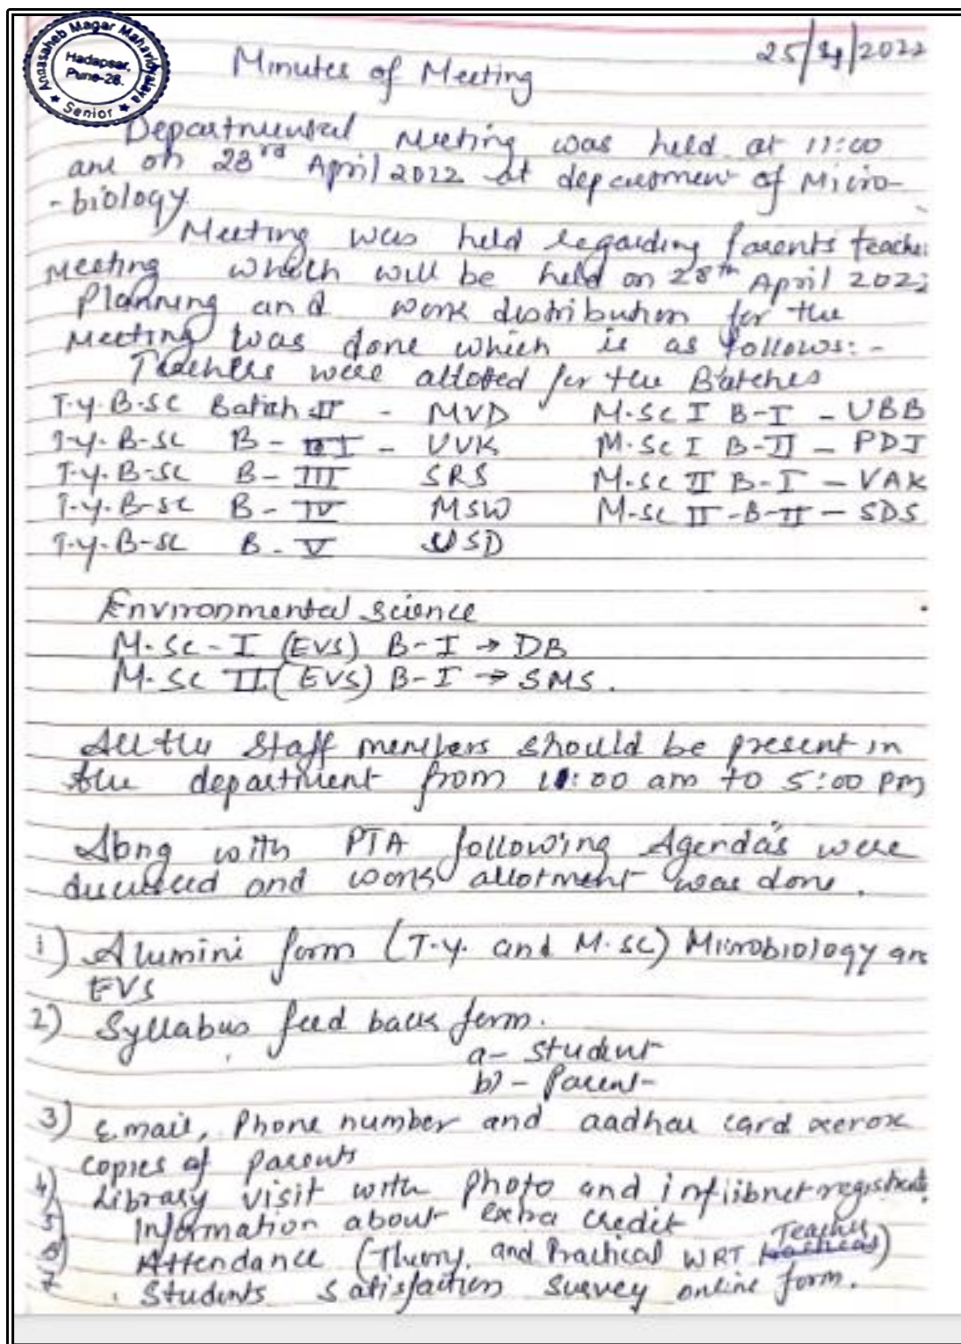 Annasaheb Magar Mahavidyalaya
Hadapsar,
Pune-28.
★ Senior ★
25/4/2022
Minutes of Meeting
Departmental Meeting was held at 11:00
am on 23rd April 2022 at department of Micro-
-biology
Meeting was held regarding parents teacher
Meeting which will be held on 28th April 202
Planning and work distribution for the
Meeting was done which is as follows:-
Teachers were alloted for the Batches
T.Y.B-SC Batch II - MVD M.SC I B-I - UBB
T.Y.B-SC B- - VVK M.SC I B-II - PDJ
T.Y.B-SC B- III SRS M.SC II B-I - VAK
T.Y.B-SC B- IV MSW M.SC II-B-II - SDS
T.Y.B-SC B-V SD
Environmental science
M.SC-I (EVS) B-I → DB
M.SC II (EVS) B-I → SMS.
All the staff members should be present in
the department from :00 am to 5:00 pm
Along with PTA following Agenda's were
discussed and work allotment was done.
1) Alumini form (T.Y. and M.SC) Microbiology an
EVS
2) Syllabus feed back form.
a- Student
b) - Parent-
3) Email, Phone number and aadhar card xerox
copies of parents
4) Library visit with photo and inflibnet
5) Information about extra credit
6) Attendance (Theory, and Practical WRT Teacher)
7 Students satisfaction survey online form.